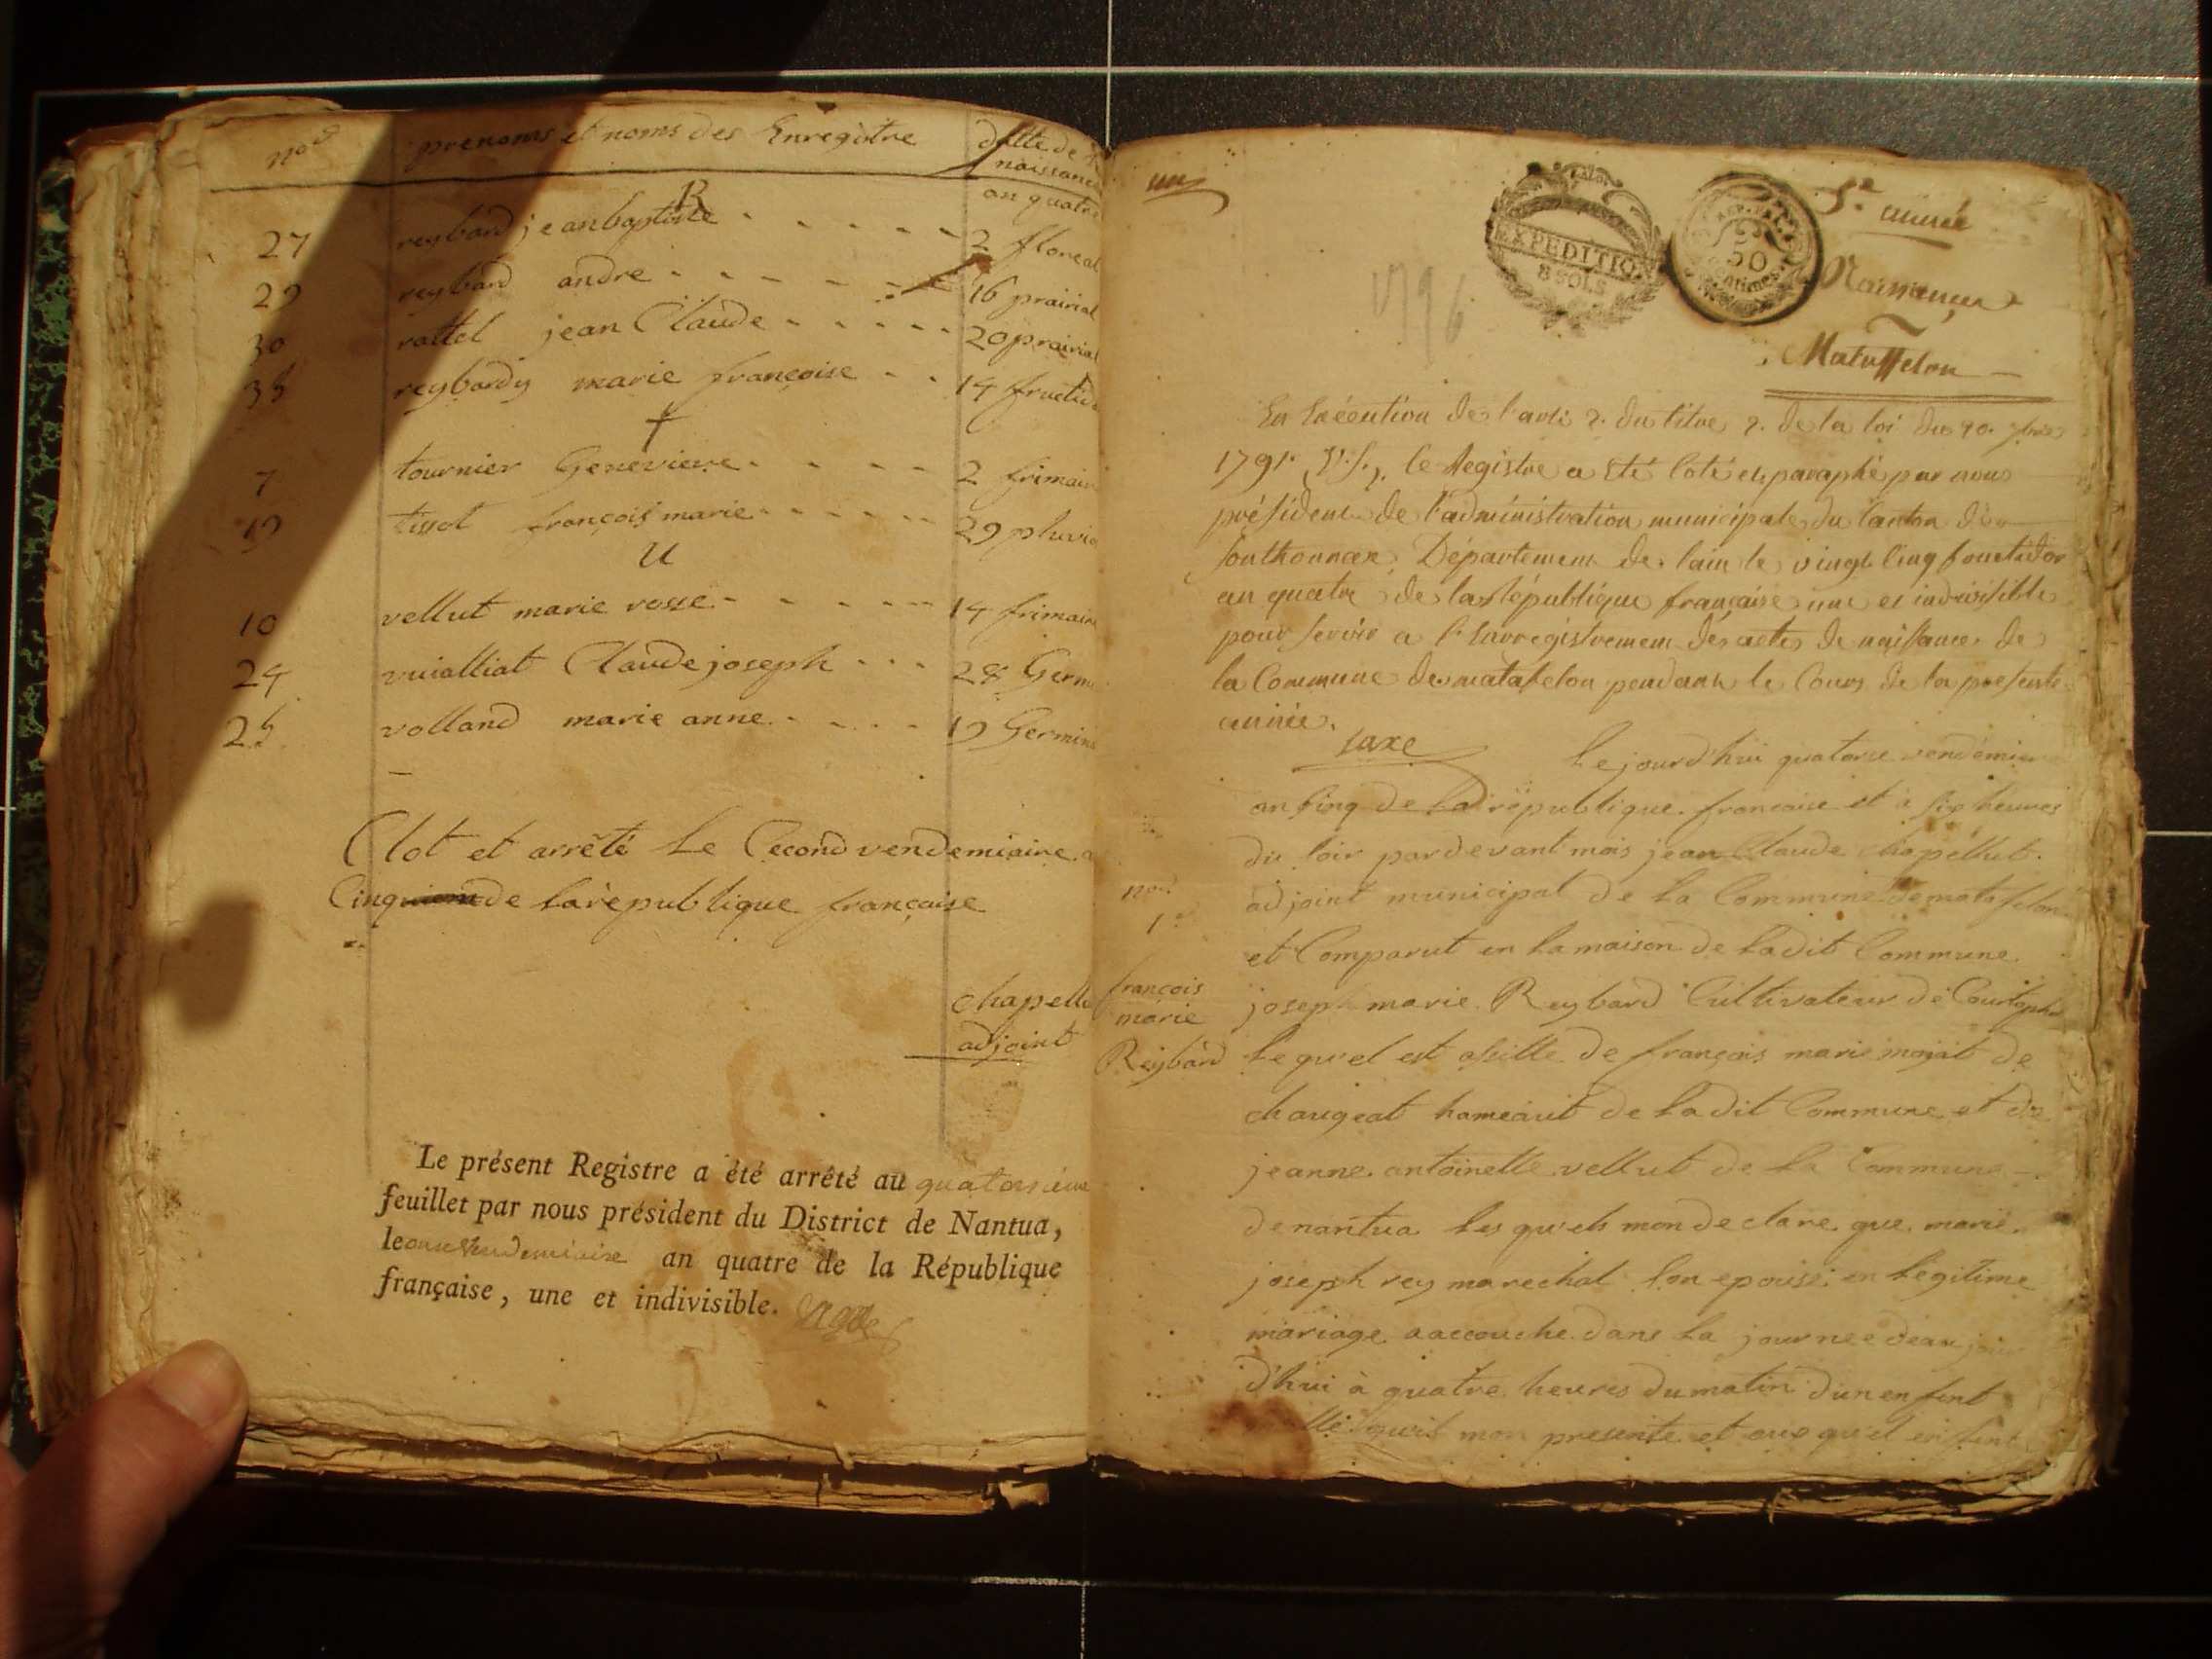 nos prenoms et noms des Enregistre datte de naissance
an quatre
R
27 reybard jean baptiste 2 floreal
29 reybard andre 16 prairial
30 rattel jean Claude 20 prairial
35 reybardy marie françoise 14 fructid
t
7 tournier Genevieve 2 frimair
19 tissot françois marie 29 pluvio
U
10 vellut marie rosse 14 frimaire
24 vuialliat Claude joseph 28 Germi
25 volland marie anne 19 Germina
Clot et arrêté le Cecond vendemiaire a
Cinq de la république française
Chapellu
adjoint
Le présent Registre a été arrêté au quatorsieme
feuillet par nous président du District de Nantua,
le onze Vendemiaire an quatre de la République
française, une et indivisible.
un
EXPEDITION
8 SOLS
REP. FRA.
50
centimes
1796
5e année
Naissances
Mataffelon
En Exécution de l'arti 2. du titre 2. de la loi du 20. 7bre
1791. V.S., le Registre a été Coté et paraphé par nous
président de l'administration municipale du Canton de
Sonthonnax, Département de l'ain le vingt Cinq fructidor
an quatre de la République française une et indivisible
pour servir a l'Enregistrement des actes de naissance de
la Commune de matafelon pendant le Cours de la presente
année.
Laxe
Le jourd'hui quatorze vendemiaire
an Cinq de la république francaise et à six heures
du soir pardevant mois jean Claude Chapellut
adjoint municipal de la Commune de matafelon
et Comparut en la maison de ladit Commune
joseph marie Reybard Cultivateur de
le quel est assille de françois marie mojat de
chaugeat hameaut de ladit Commune et de
jeanne antoinette vellut de la Commune
de nantua les quels mon declare que marie
joseph rey marechal son epouse en legitime
mariage a accouche dans la journee deau jour
d'hui à quatre heures du matin dun enfent
quil mon presente et au quel enfent
nos
1er
françois
marie
Reybard